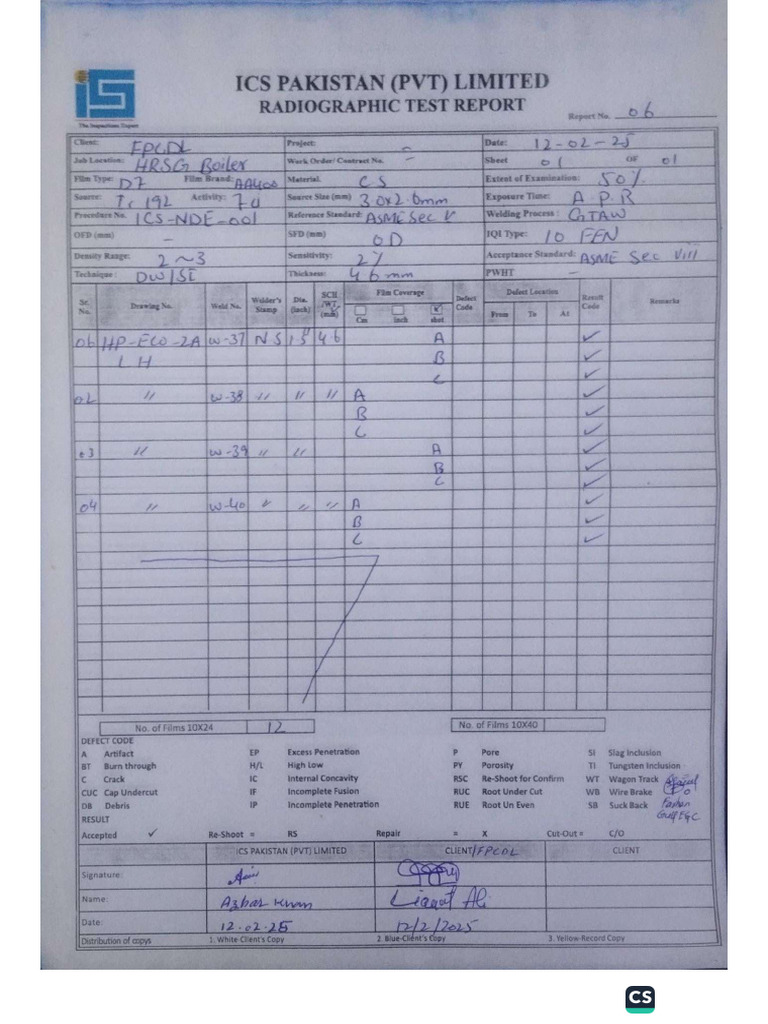 ICS PAKISTAN (PVT) LIMITED
RADIOGRAPHIC TEST REPORT
The Inspections Expert
Report No. 06
Client: FPCDL Project: - Date: 12-02-25
Job Location: HRSG Boiler Work Order/ Contract No. - Sheet 01 OF 01
Film Type: D7 Film Brand: AA400 Material CS Extent of Examination: 50%
Source: Ir 192 Activity: 7ci Source Size (mm) 3.0x2.6mm Exposure Time: A.P.R
Procedure No. ICS-NDE-001 Reference Standard: ASME Sec V Welding Process: GTAW
OFD (mm) - SFD (mm) OD IQI Type: 10 FEN
Density Range: 2~3 Sensitivity: 2% Acceptance Standard: ASME Sec VIII
Technique: DW/SI Thickness: 4.6mm PWHT -
Sr. No. Drawing No. Weld No. Welder's Stamp Dia. (inch) SCH /WT (mm) Film Coverage Cm inch shot Defect Code Defect Location From To At Result Code Remarks
HP-ECO-2A W-37 NS 1.5" 4.6 A ✓
LH B ✓
C ✓
02 〃 W-38 〃 〃 〃 A ✓
B ✓
C ✓
03 〃 W-39 〃 〃 A ✓
B ✓
C ✓
04 〃 W-40 〃 〃 〃 A ✓
B ✓
C ✓
No. of Films 10X24 12 No. of Films 10X40
DEFECT CODE
A Artifact EP Excess Penetration P Pore SI Slag Inclusion
BT Burn through H/L High Low PY Porosity TI Tungsten Inclusion
C Crack IC Internal Concavity RSC Re-Shoot for Confirm WT Wagon Track
CUC Cap Undercut IF Incomplete Fusion RUC Root Under Cut WB Wire Brake
DB Debris IP Incomplete Penetration RUE Root Un Even SB Suck Back
Gulf EGC
RESULT
Accepted ✓ Re-Shoot = RS Repair = X Cut-Out = C/O
ICS PAKISTAN (PVT) LIMITED CLIENT/FPCDL CLIENT
Signature:
Name: Azhar Khan Liaqat Ali
Date: 12.02.25 12/2/2025
Distribution of copys 1. White-Client's Copy 2. Blue-Client's Copy 3. Yellow-Record Copy
CS